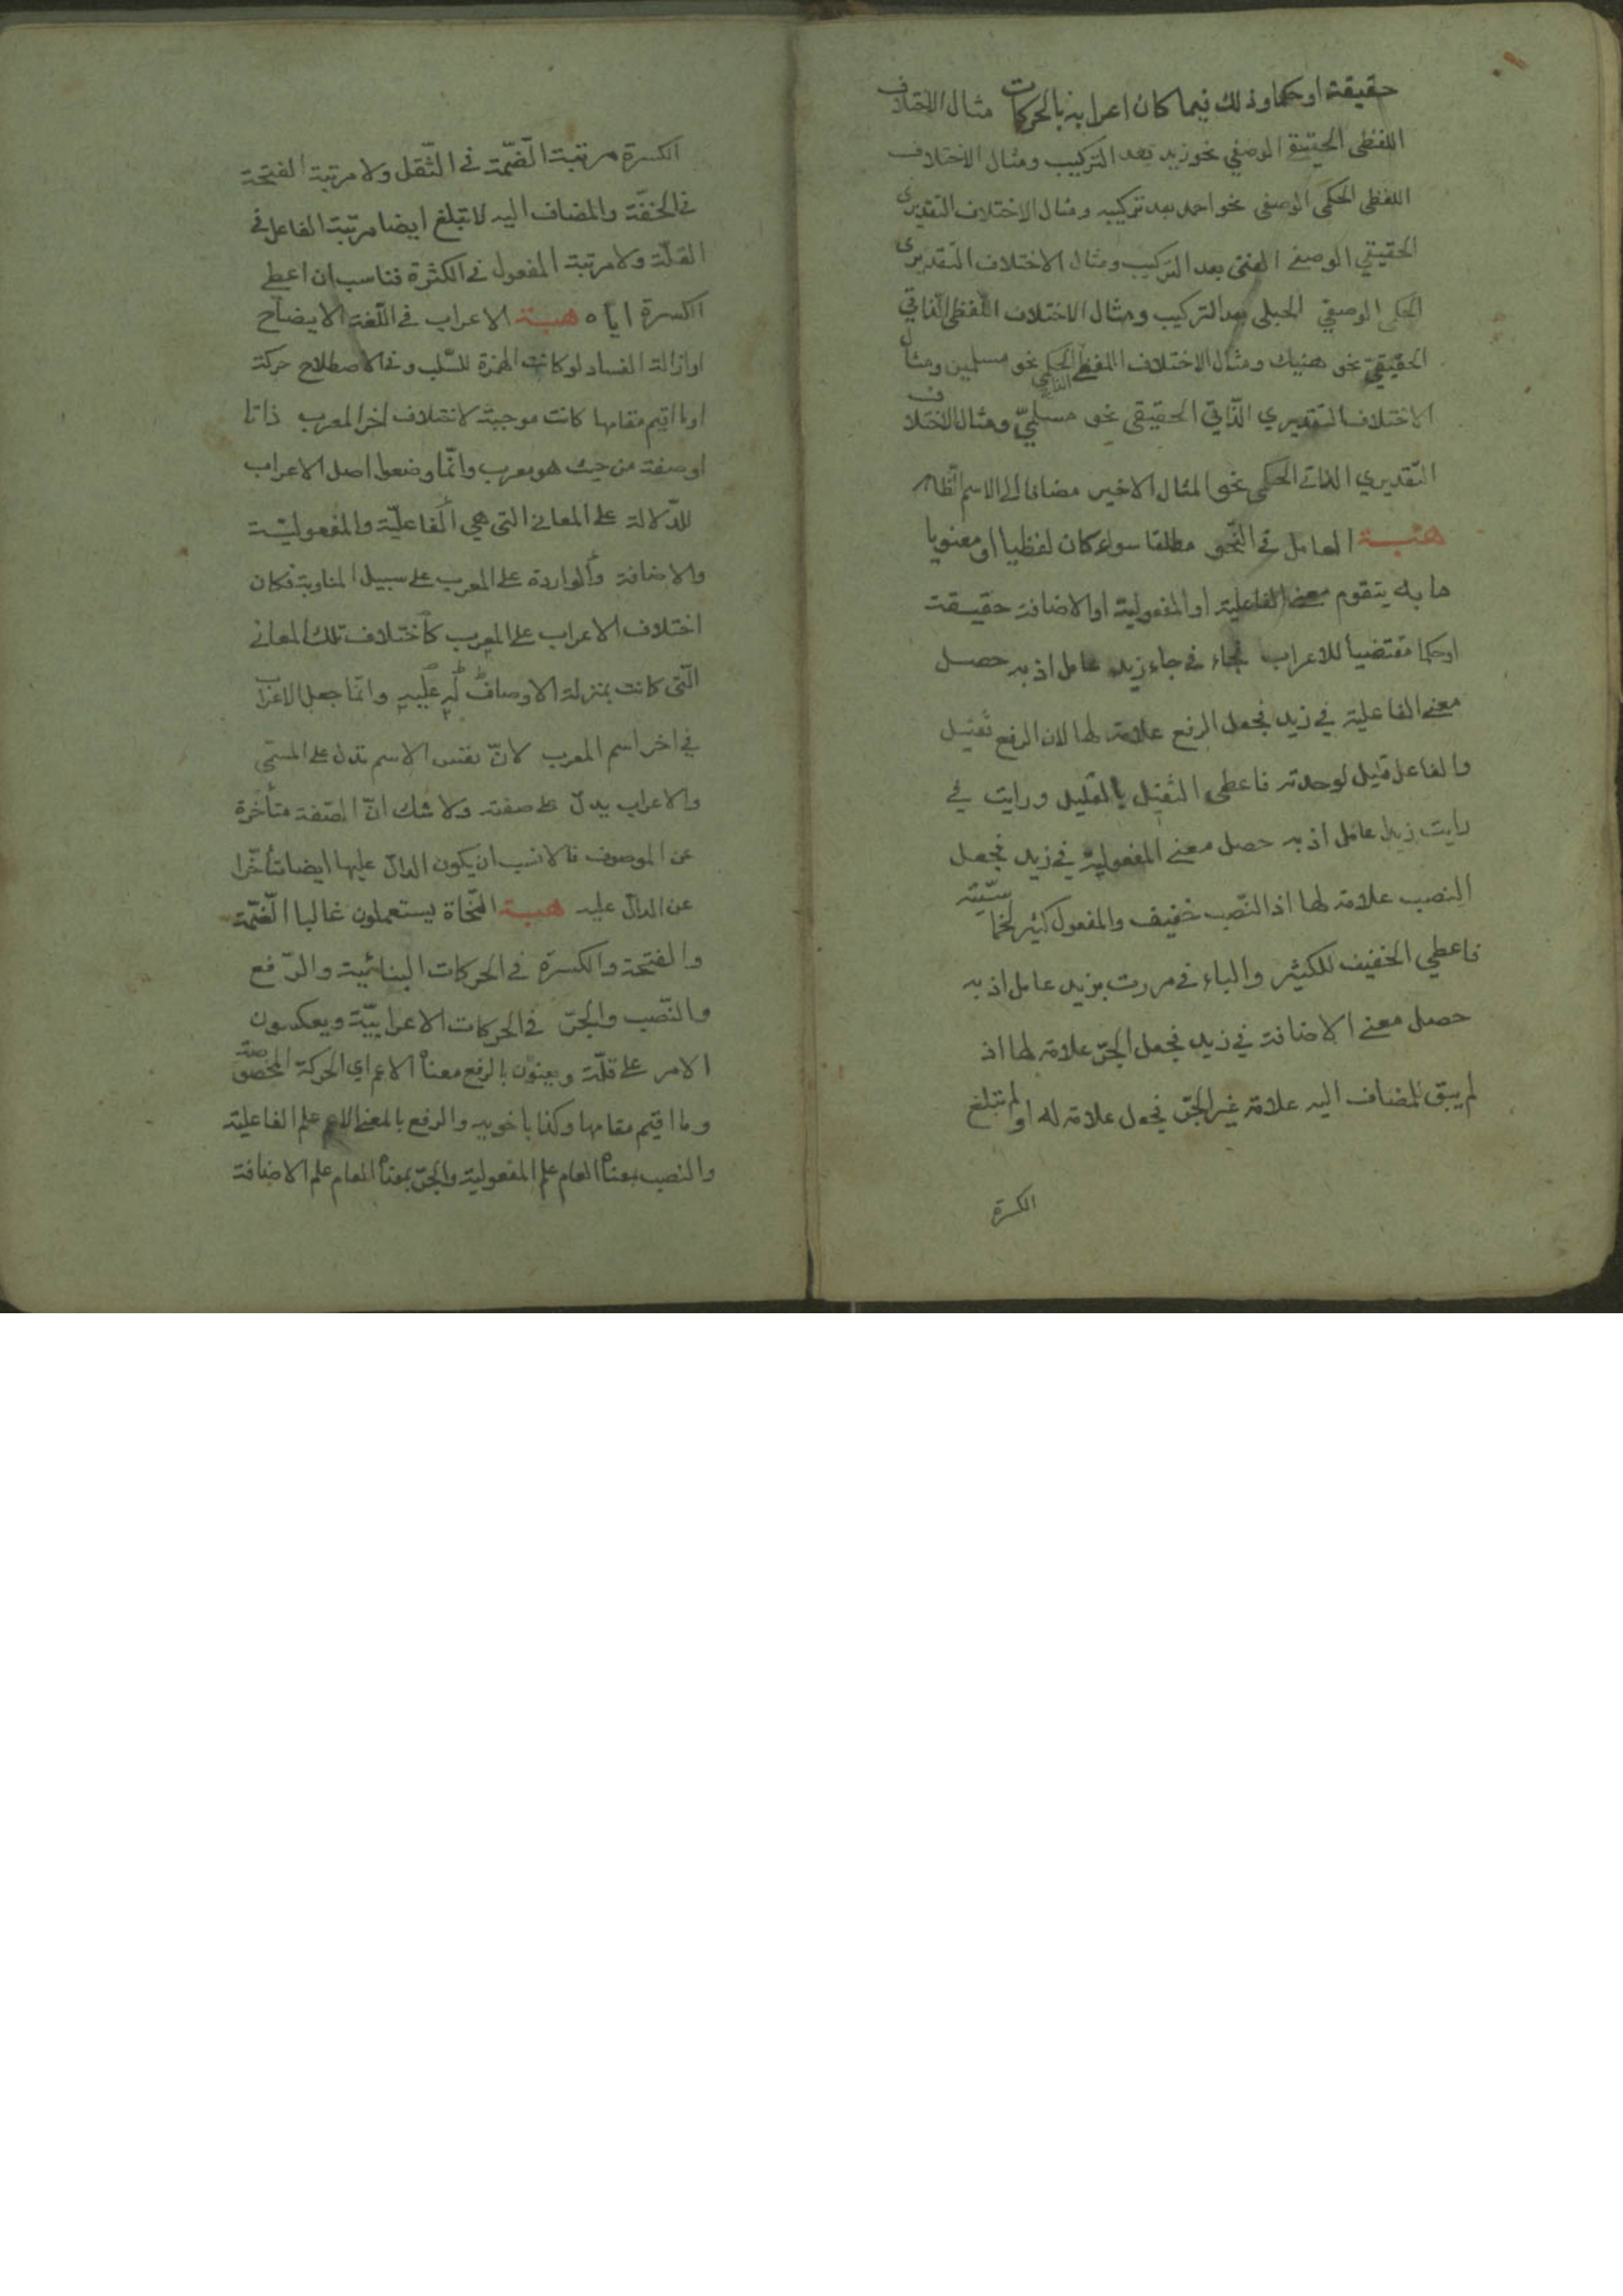 حقيقة او حكما وذلك فيما كان اعرابه بالحركات مثال الاختلاف
اللفظى الحقيقى الوصفي نحو زيد بعد التركيب ومثال الاختلاف
اللفظى الحكمى الوصفى نحو احمد بعد تركيبه ومثال الاختلاف التقديرى
الحقيقي الوصفى الفتى بعد التركيب ومثال الاختلاف التقديرى
الحكمى الوصفي الحبلى بعد التركيب ومثال الاختلاف اللفظى الذاتي
الحقيقي نحو هنيك ومثال الاختلاف اللفظى الحكمى الذاتى نحو مسلمين ومثال
الاختلاف التقديري الذّاتي الحقيقى نحو مسلميّ ومثال الاختلاف
التقديري الذاتى الحكمى نحو المثال الاخير مضافا الى الاسم الظاهر
هبة العامل فى النّحو مطلقا سواء كان لفظيا او معنويا
ما به يتقوم معنى الفاعلية او المفعولية او الاضافة حقيقة
او حكما مقتضيا للاعراب فجاء فى جاء زيد عامل اذ به حصل
معنى الفاعلية في زيد فجعل الرفع علامة لها لان الرفع ثقيل
والفاعل قليل لوحدته فاعطى الثقيل بالقليل ورايت في
رايت زيدا عامل اذ به حصل معنى المفعولية في زيد فجعل
النصب علامة لها اذ النّصب خفيف والمفعول كثير لخماسيّته
فاعطي الخفيف للكثير والباء فى مررت بزيد عامل اذ به
حصل معنى الاضافة في زيد فجعل الجرّ علامة لها اذ
لم يبق للمضاف اليه علامة غير الجرّ فجعل علامة له او لم تبلغ
الكسرة
الكسرة مرتبة الضّمّة فى الثّقل ولا مرتبة الفتحة
فى الخفّة والمضاف اليه لا تبلغ ايضا مرتبة الفاعل فى
القلّة ولا مرتبة المفعول فى الكثرة فناسب ان اعطى
الكسرة اياه هبة الاعراب فى اللّغة الايضاح
او ازالة الفساد لو كانت الهمزة للسّلب وفى الاصطلاح حركة
او ما اقيم مقامها كانت موجبة لاختلاف اخر المعرب ذاتا
او صفة من حيث هو معرب وانّما وضعوا اصل الاعراب
للدّلالة على المعانى التى هي الفاعليّة والمفعوليّة
والاضافة والواردة على المعرب على سبيل المناوبة فكان
اختلاف الاعراب على المعرب كاختلاف تلك المعانى
الّتى كانت بمنزلة الاوصاف له عليه وانّما جعل الاعراب
في اخر اسم المعرب لانّ نفس الاسم تدل على المسمّى
والاعراب يدلّ على صفته ولا شك انّ الصّفة متأخّرة
عن الموصوف فالانسب ان يكون الدالّ عليها ايضا متأخّرا
عن الدالّ عليه هبة النّحاة يستعملون غالبا الضّمّة
والفتحة والكسرة فى الحركات البنائيّة والرّفع
والنّصب والجرّ فى الحركات الاعرابيّة ويعكسون
الامر على قلّة ويعنون بالرفع معناه الاعم اي الحركة المخصوصة
وما اقيم مقامها وكذا باخويه والرفع بالمعنى الاعم علم الفاعلية
والنصب بمعناه العام علم المفعولية والجرّ بمعناه العام علم الاضافة